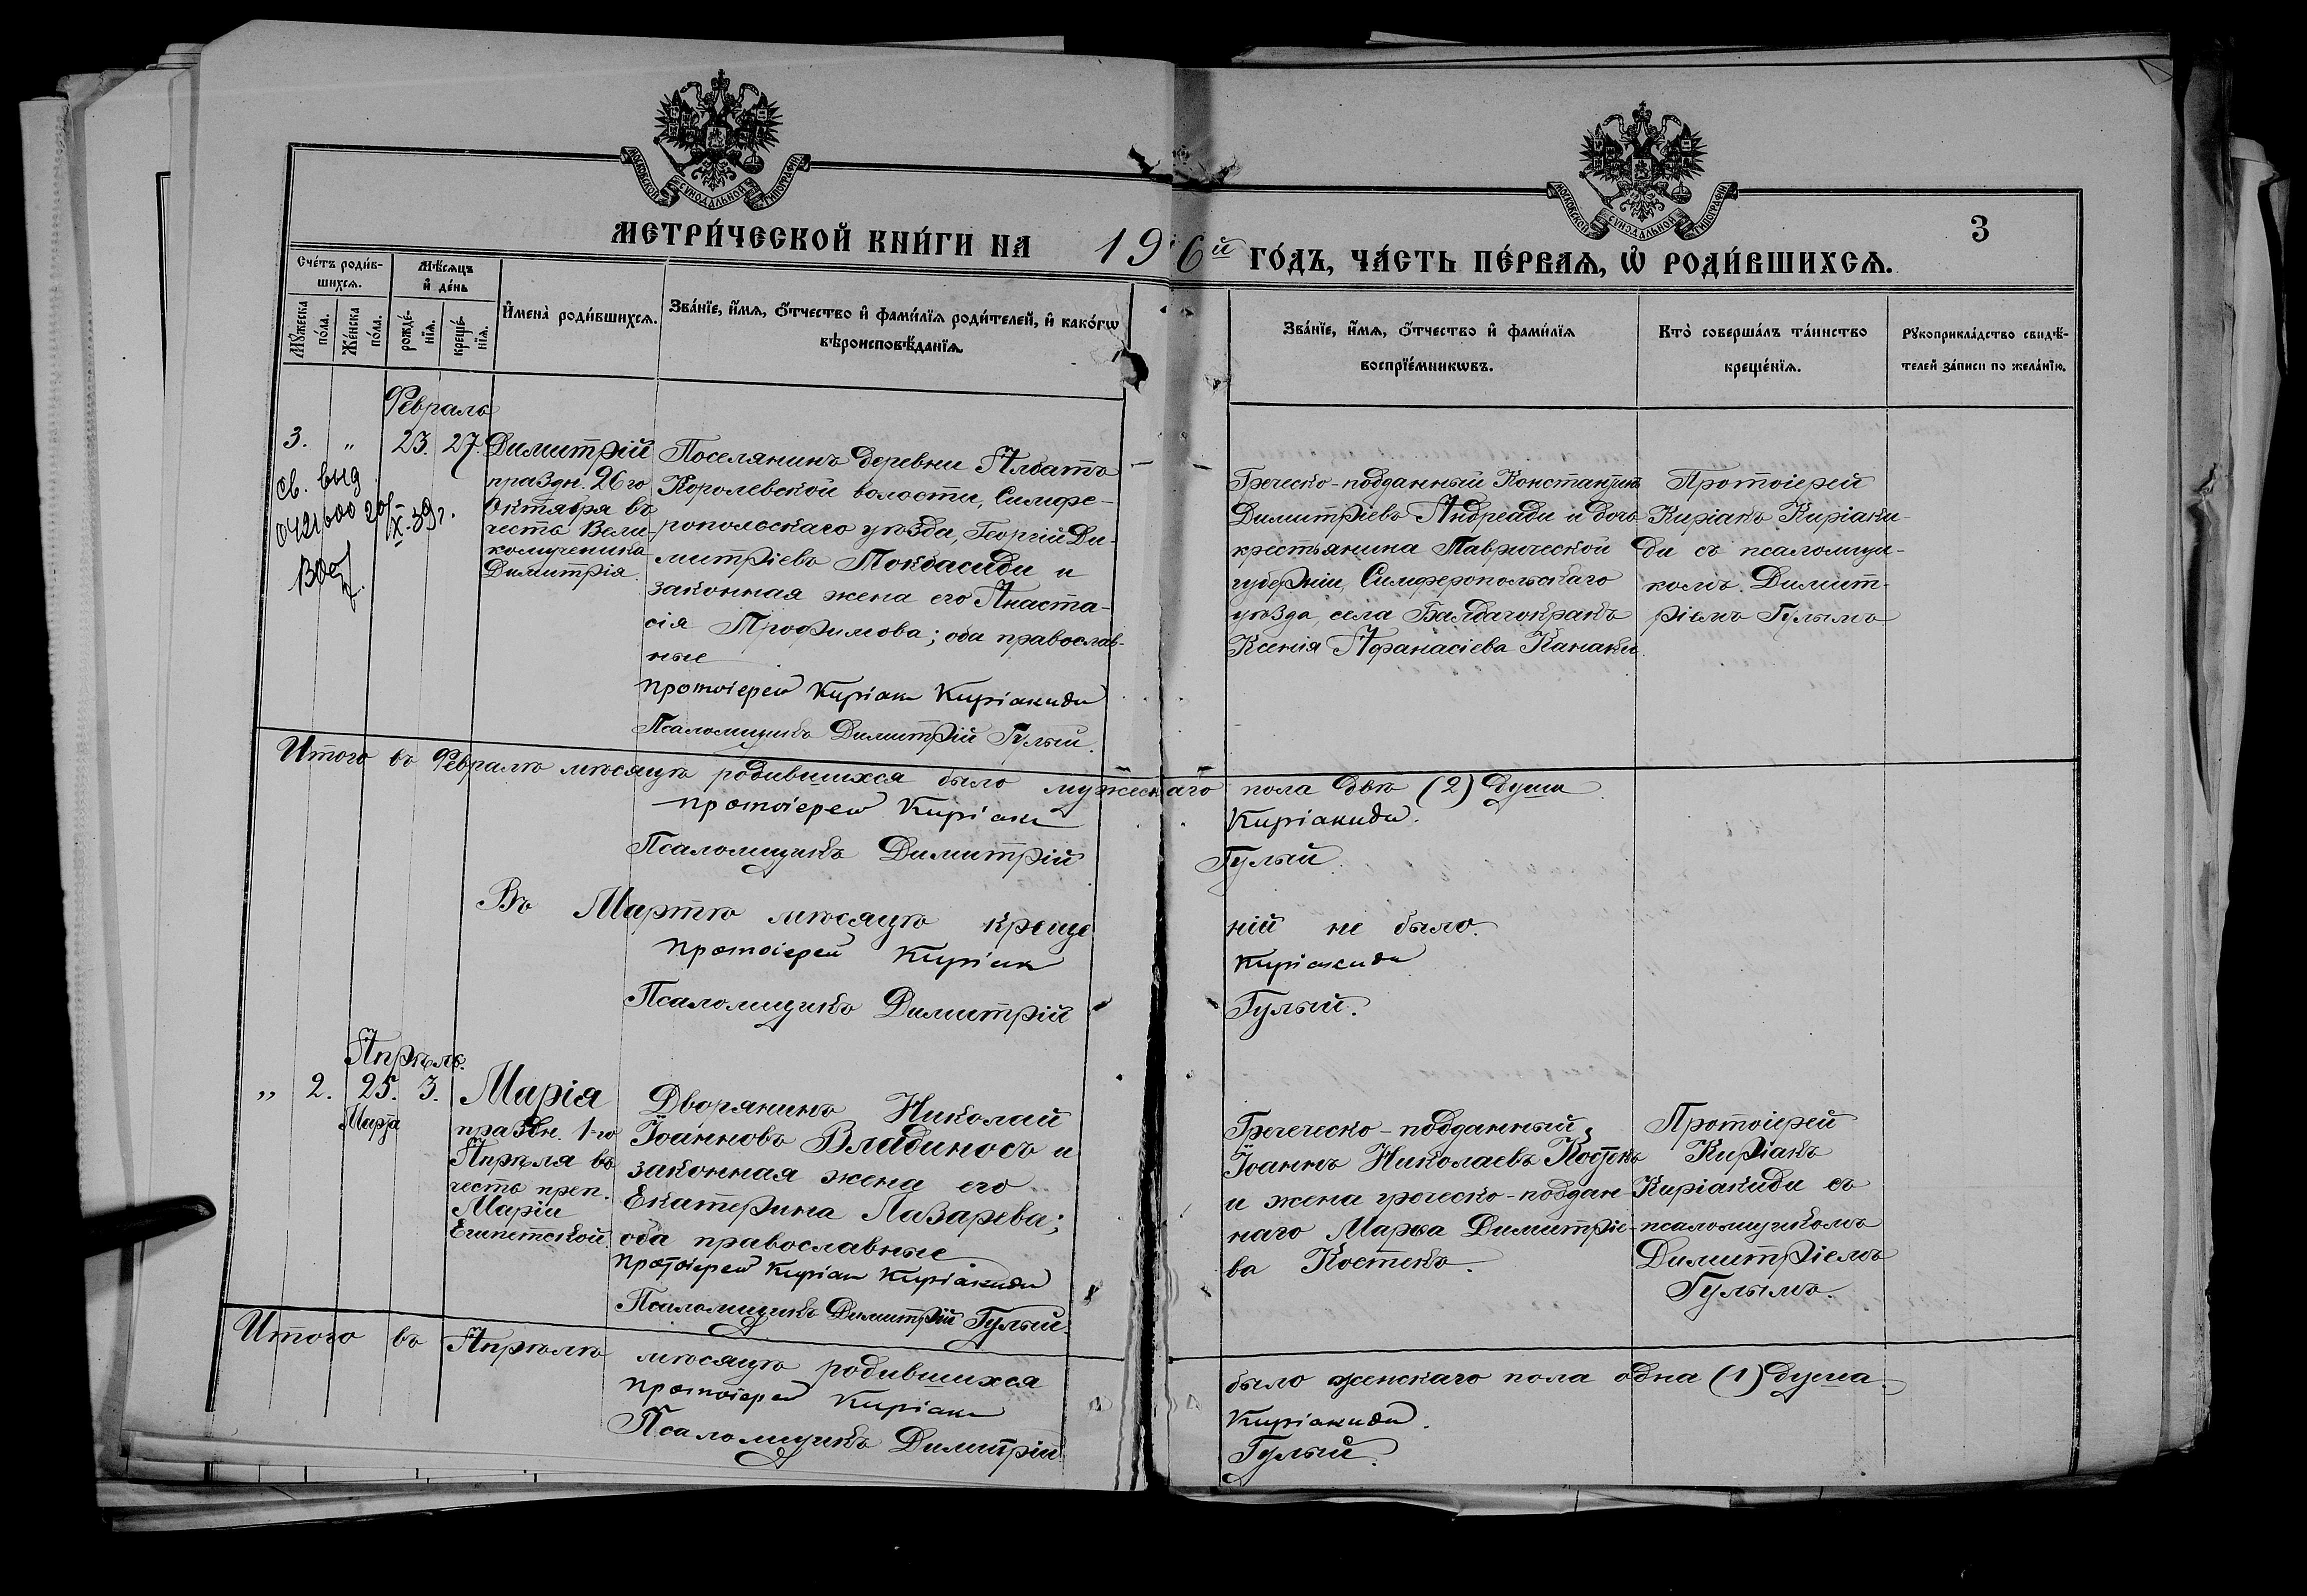 МОСКОВСКОЙ СѴНОДАЛЬНОЙ ТИПОГРАФІИ
МОСКОВСКОЙ СѴНОДАЛЬНОЙ ТИПОГРАФІИ
3
МЕТРИ́ЧЕСКОЙ КНИ́ГИ НА 19 6й ГО́ДЪ, ЧА́СТЬ ПЕ́РВАѦ, Ѡ РОДИ́ВШИХСѦ.
Сче́тъ роди́в-
шихсѧ.
Мѣ́сѧцъ
и҆ де́нь
Мꙋ́жеска
по́ла.
Же́нска
по́ла.
рожде́-
нїѧ.
креще́-
нїѧ.
И҆мена̀ роди́вшихсѧ.
Зва́нїе, и҆́мѧ, ѻ҆́тчество и҆ фами́лїѧ роди́телей, и҆ како́гѡ
вѣроисповѣ́данїѧ.
Зва́нїе, и҆́мѧ, ѻ҆́тчество и҆ фами́лїѧ
воспрїе́мникѡвъ.
Кто̀ соверша́лъ та́инство
креще́нїѧ.
Рꙋкоприкла́дство свидѣ́-
телей за́писи по жела́нїю.
Февраль
3. „ 23. 27.
св. выд
X-39г.
Димитрій
праздн. 26го
Октября въ
честь Вели-
комученика
Димитрія.
Поселянинъ деревни Албатъ
Королевской волости, Симфе-
ропольскаго уѣзда, Георгій Ди-
митріевъ Токбасиди и
законная жена его Анаста-
сія Трофимова; оба православ-
ные
Протоіерей Киріакъ Киріакиди
Псаломщикъ Димитрій Гулый.
Греческо-подданный Константинъ
Димитріевъ Андреади и дочь
крестьянина Таврической
губерніи, Симферопольскаго
уѣзда, села
Ксенія Афанасіева Канаки.
Протоіерей
Киріакъ Киріаки-
ди съ псаломщи-
комъ Димит-
ріемъ Гулымъ
Итого въ Февралѣ мѣсяцѣ родившихся было мужескаго пола двѣ (2) души
Протоіерей Киріакъ Киріакиди.
Псаломщикъ Димитрій Гулый.
Въ Мартѣ мѣсяцѣ креще ній не было.
Протоіерей Киріакъ Киріакиди
Псаломщикъ Димитрій Гулый.
Апрѣль.
„ 2. 25. 3.
Марта
Марія
праздн. 1-го
Апрѣля въ
честь преп.
Маріи
Египетской.
Дворянинъ Николай
Іоанновъ Владиносъ и
законная жена его
Екатерина Лазарева;
оба православные
Протоіерей Киріакъ Киріакиди
Псаломщикъ Димитрій Гулый.
Греческо-подданный
Іоаннъ Николаевъ Костекъ
и жена греческо-поддан-
наго Марѳа Димитріе-
ва Костекъ.
Протоіерей
Киріакъ
Киріакиди съ
псаломщикомъ
Димитріемъ
Гулымъ.
Итого въ Апрѣлѣ мѣсяцѣ родившихся было женскаго пола одна (1) душа.
Протоіерей Киріакъ Киріакиди.
Псаломщикъ Димитрій Гулый.